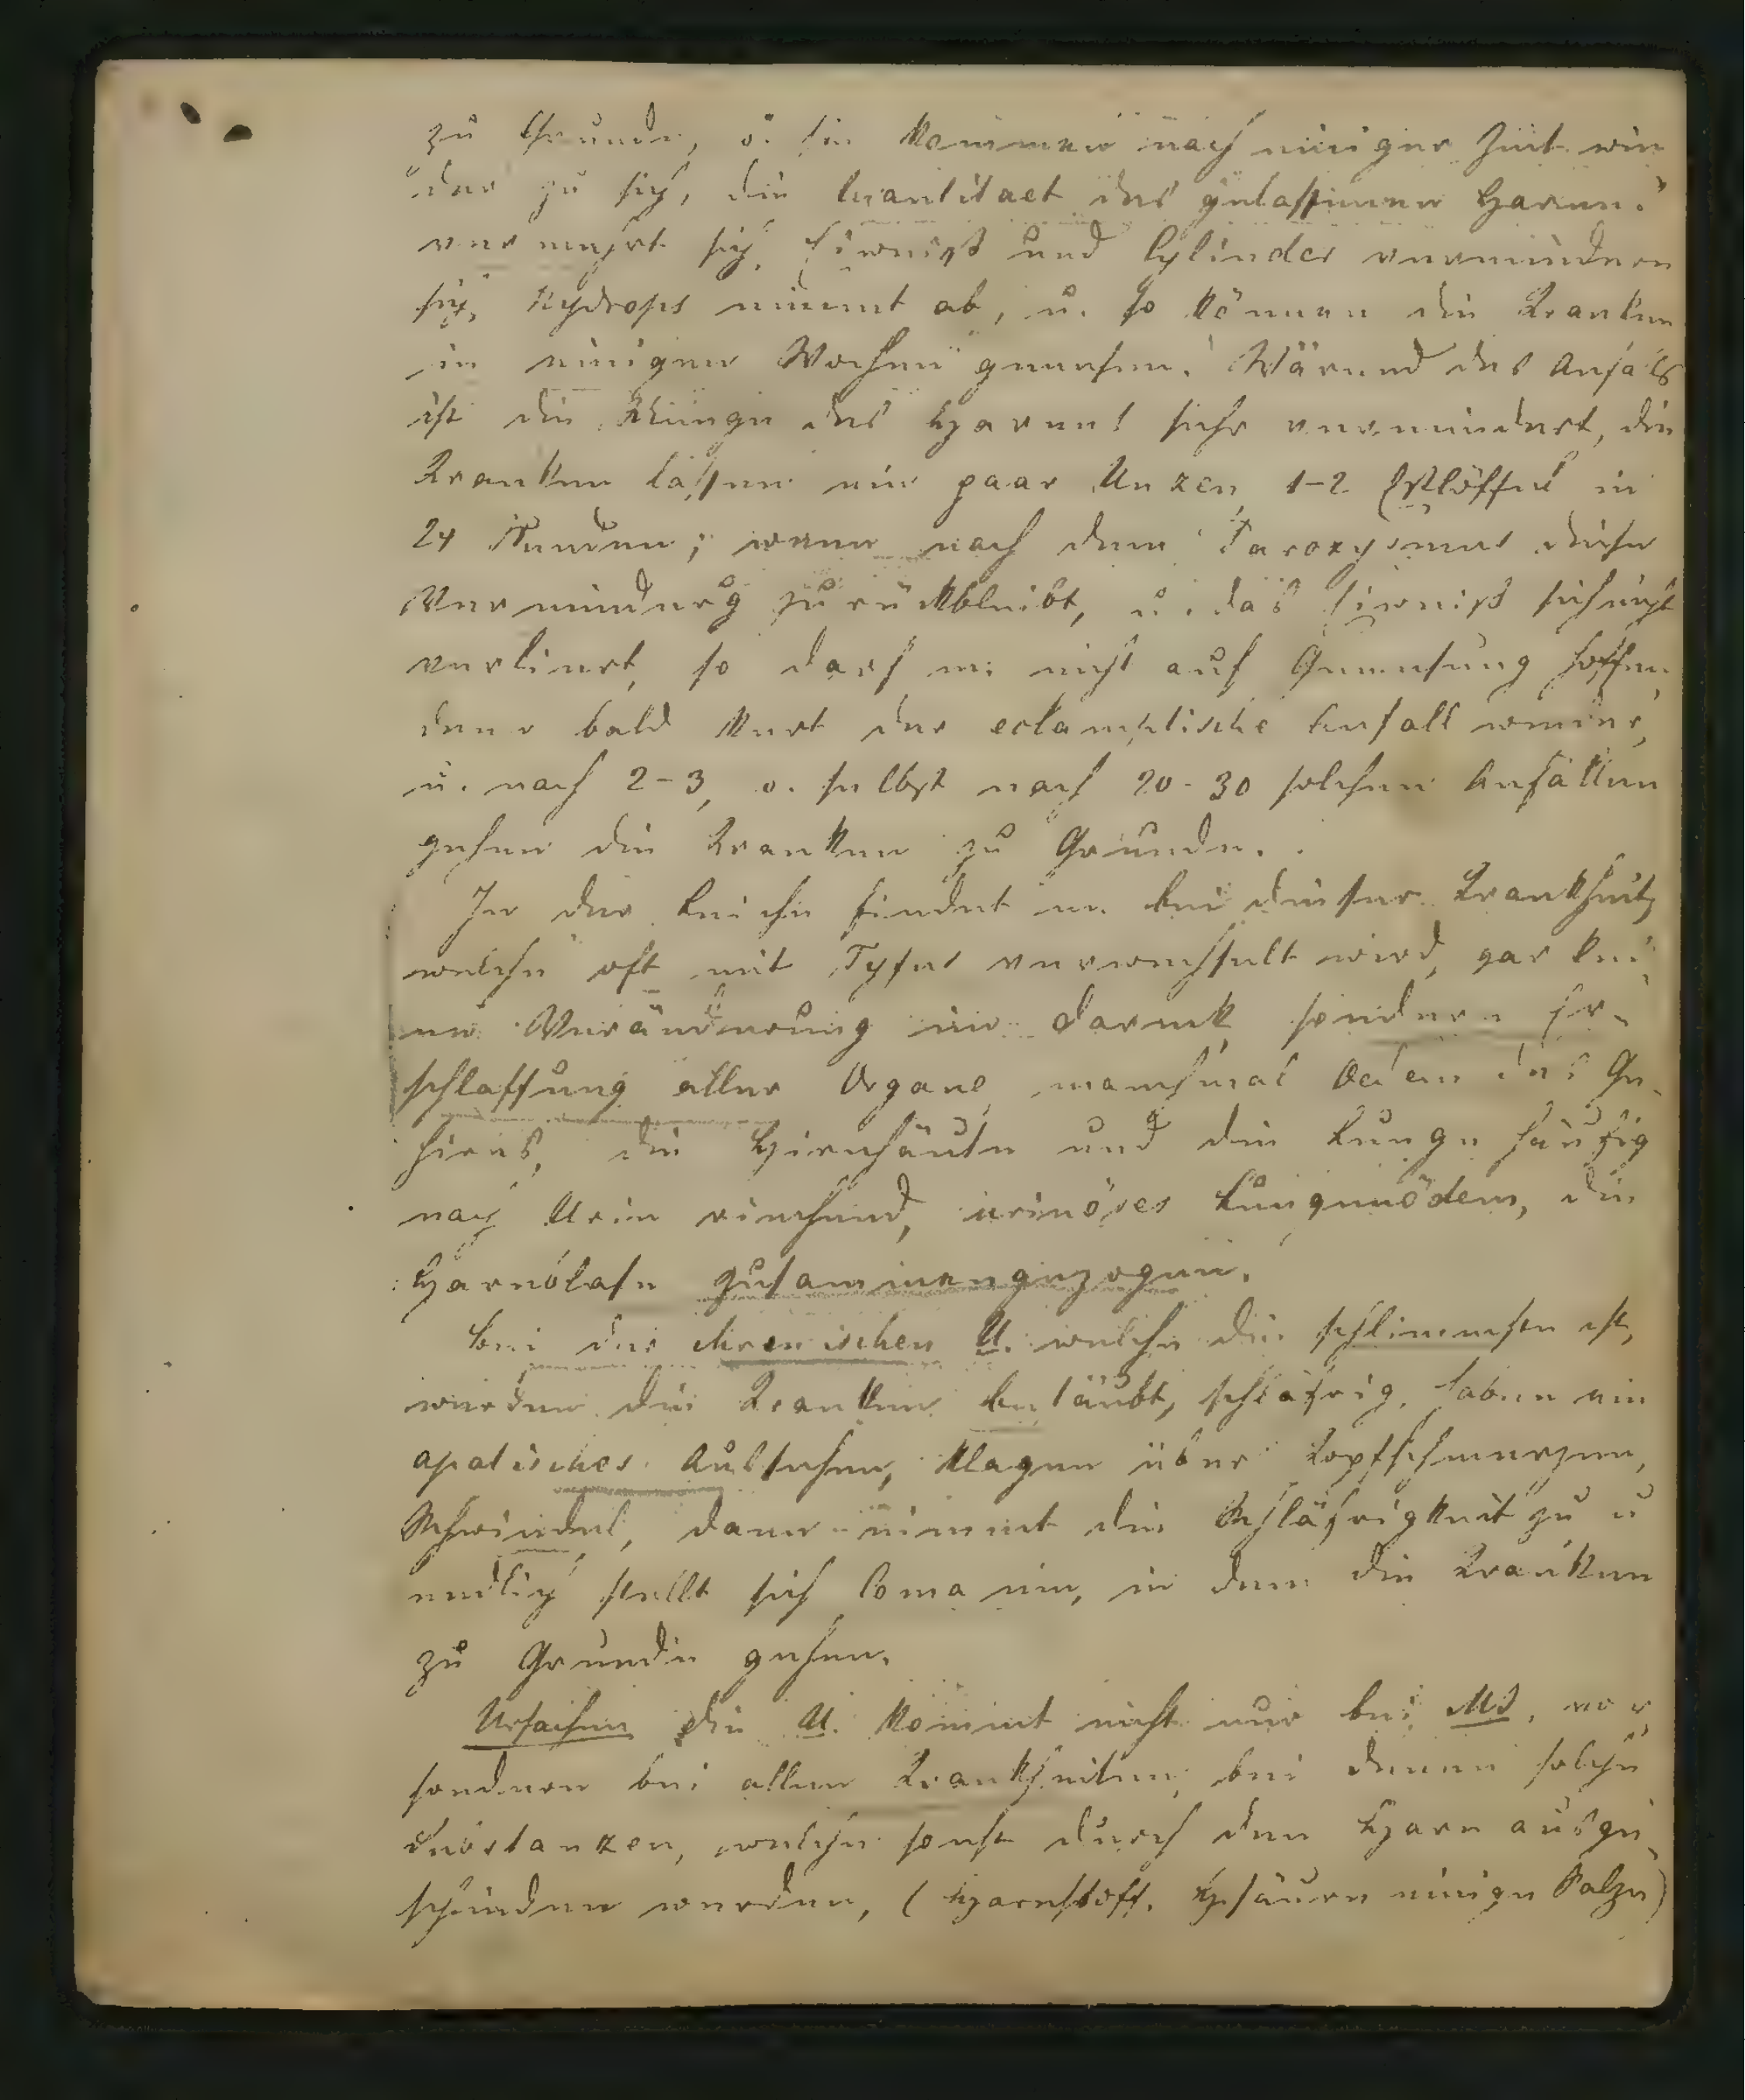 zu Grunde, o. sie kommen nach einiger Zeit wie
der zu sich, die Quantitaet des gelassenen Harns
vermehrt sich, Eiweiß und Cylinder vermindern
sich, Hydrops nimmt ab, u. so können die Kranken
in einigen Wochen genesen. Wärend des Anfalls
ist die Menge des Harns sehr vermindert, die
Kranken lassen ein paar Unzen, 1-2 Eßlöffel in
24 Stunden; wenn nach dem Paroxysmus diese
Verminderg zurückbleibt, u. das Eiweiß sich nicht
verliert, so darf m. nicht auf Genesung hoffen
denn bald kert der eclamptische Anfall wieder,
u. nach 2-3, o. selbst nach 20-30 solchen Anfällen
gehen die Kranken zu Grunde.
In der Leiche findet m. bei dieser Krankheit,
welche oft mit Tyfus verwechselt wird, gar kei
ne Veränderung im Darmk, sondern Er-
schlaffung aller Organe, manchmal Oedem des Ge-
hirns, die Hirnhäute und die Lunge häufig
nach Urin riechend, urinöses Lungenödem, die
Harnblase zusammengezogen.
Bei der chronischen U. welche die schlimmste ist,
werden die Kranken betäubt, schläfrig, haben ein
apatisches Aussehen, klagen über Kopfschmerzen,
Schwindel, dann nimmt die Schläfrigkeit zu u
endlich stellt sich Coma ein, in dem die Kranken
zu Grunde gehen.
Ursachen die U. kommt nicht nur bei MB. vor
sondern bei allen Krankheiten, bei denen solche
Substanzen, welche sonst durch den Harn ausge
schieden werden, (Harnstoff, Hsäure einige Salze)